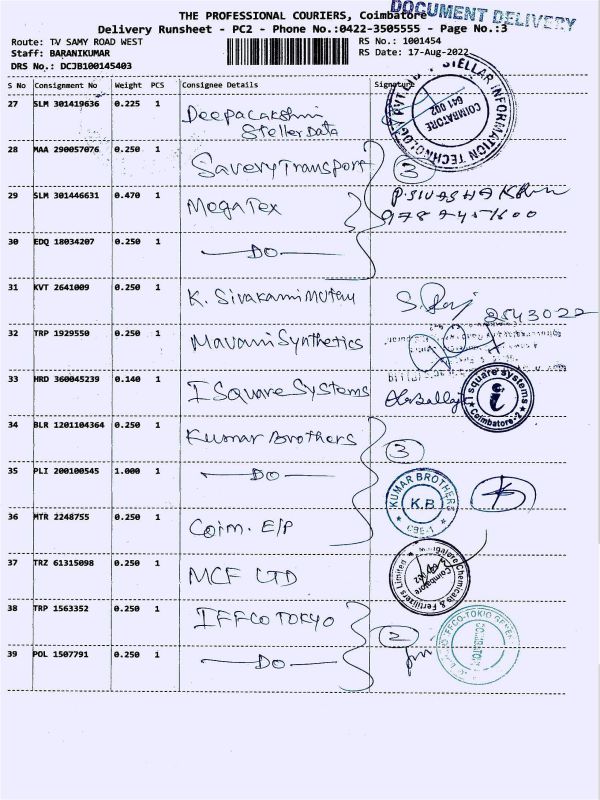 THE PROFESSIONAL COURIERS, Coimbatore
DOCUMENT DELIVERY
Delivery Runsheet - PC2 - Phone No.:0422-3505555 - Page No.:3
Route: TV SAMY ROAD WEST RS No.: 1001454
Staff: BARANIKUMAR RS Date: 17-Aug-2022
DRS No.: DCJB100145403
S No Consignment No Weight PCS Consignee Details Signature
27 SLM 301419636 0.225 1 Deepalakshmi
Steller Data
STELLAR INFORMATION TECHNOLOGY PVT
COIMBATORE 641 002
28 MAA 290057076 0.250 1 Savery Transport 3
29 SLM 301446631 0.470 1 Mega Tex
30 EDQ 18034207 0.250 1 DO
31 KVT 2641009 0.250 1 K. Sivakami Muthu S. Raj
2543022
32 TRP 1929550 0.250 1 Mavami Synthetics
33 HRD 360045239 0.140 1 I Square Systems
i square systems Coimbatore-2
34 BLR 1201104364 0.250 1 Kumar Brothers 3
35 PLI 200100545 1.000 1 DO
KUMAR BROTHERS K.B CBE-1
36 MTR 2248755 0.250 1 Coim. E/P
37 TRZ 61315098 0.250 1 MCF LTD
Mangalore Chemicals & Fertilizers Limited Coimbatore
38 TRP 1563352 0.250 1 IFFCO TOKYO 2
39 POL 1507791 0.250 1 DO
IFFCO-TOKIO GENERAL